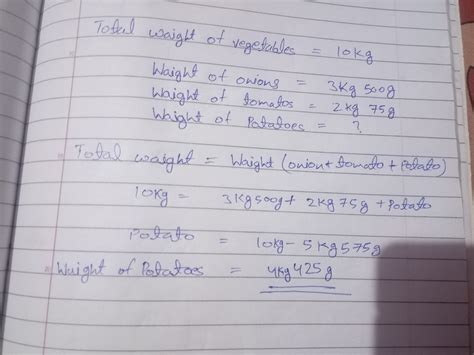 Total waight of vegetables = 10kg
Waight of onions = 3Kg 500g
Waight of tomatos = 2kg 75g
Waight of Potatoes = ?
Total waight = Waight (onion + tomato + Potato)
10Kg = 3Kg500g + 2Kg75g + Potato
Potato = 10kg - 5Kg575g
Waight of Potatoes = 4Kg425g